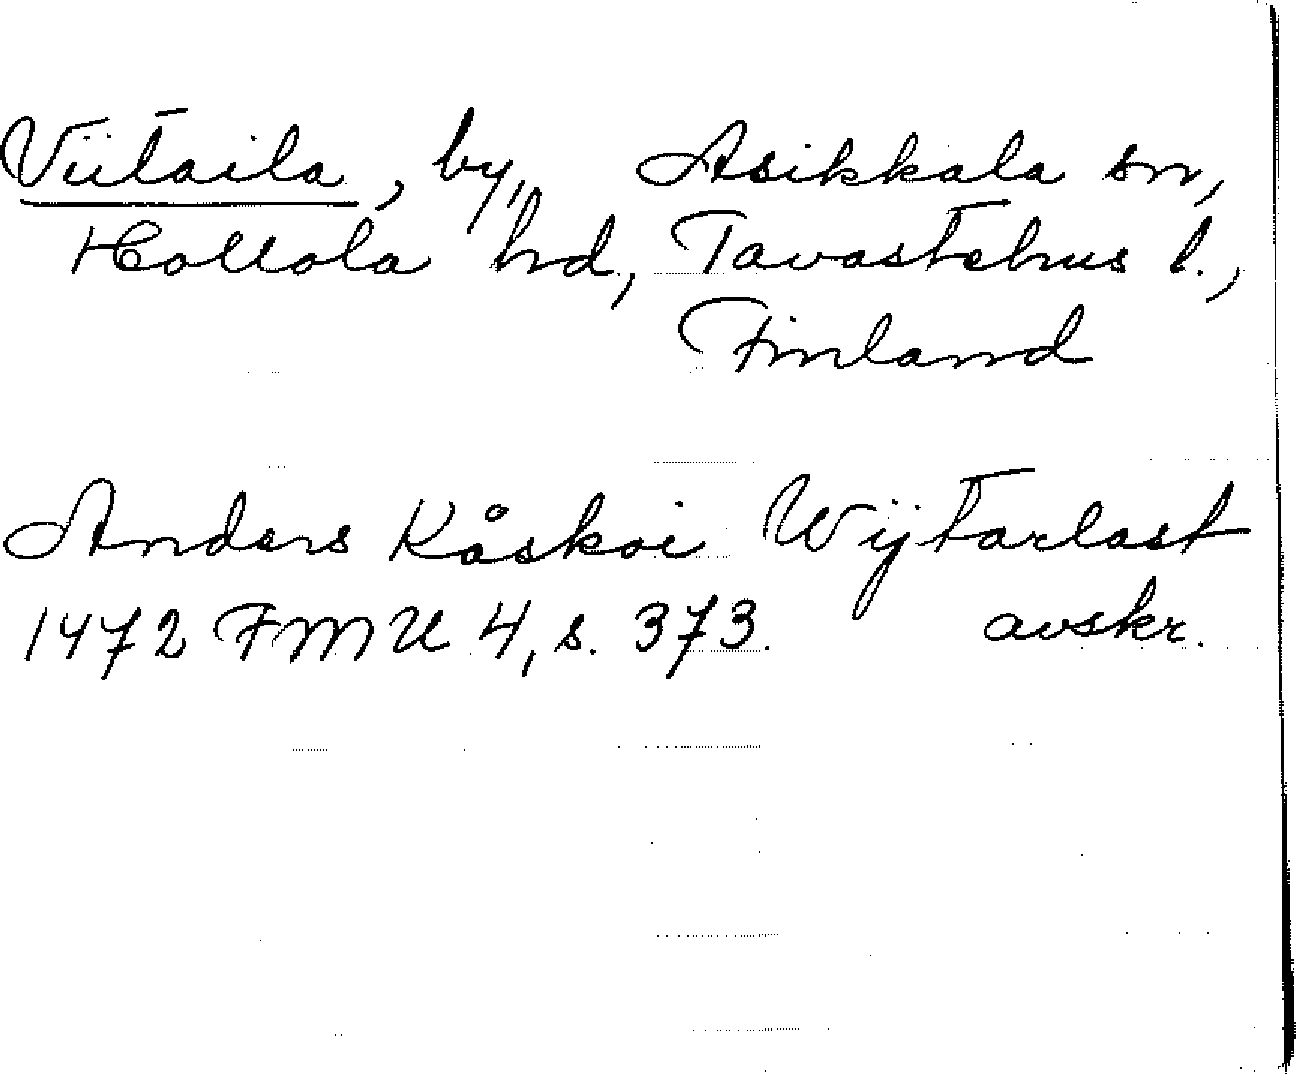 Viitaila, by, Asikkala sn,
Hollola hd, Tavastehus l.,
Finland
Anders Kåskoi Wijtarlast
1472 FMU 4, s. 373. avskr.